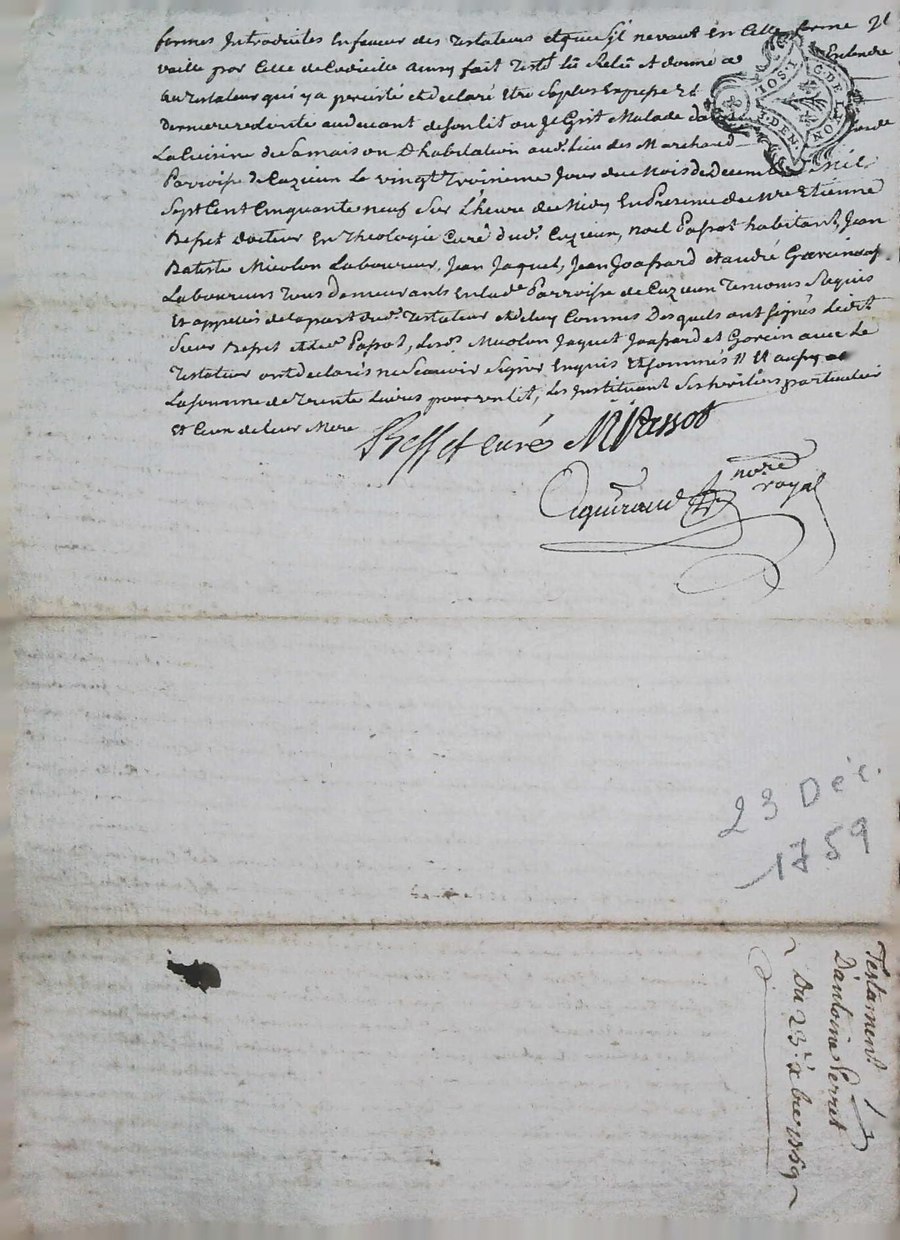 termes Introduites En faveur des Testateurs et que s'il ne vaut En Cette forme Il
vaille par Celle de Codicille ainsy fait Test. lû Relû et donné a Entendre
au Testateur qui y a persisté et déclaré Etre Sa plus Expresse et
Derniere volonté au devant de son lit ou Il Git Malade da
La Cuisine de Sa maison D'habitation aud. lieu des Marchand
Parroisse de Cuzieu Le vingt Troisieme Jour du Mois de Decem Mil
Sept Cent Cinquante neuf Sur L'heure de Midy En Presence de Mre Etienne
Besset Docteur En Theologie Curé dud. Cuzieu, noel Passot habitant, Jean
Batiste Micolon Laboureur, Jean Jaquet, Jean Joassard et andré Garcin
Laboureurs Tous Demeurants En lade Parroisse de Cuzieu Temoins Requis
Et appellés de la part dud. Testateur et de luy Connus Desquels ont signés ledit
Sieur Besset et led. Passot, les. Micolon Jaquet Joassard et Garcin avec Le
Testateur ont declarés ne Scavoir Signer Enquis et sommés
La somme de Trente Livres les Instituant Ses heritiers particulier
Et Ceux de leur Mere
Besset curé M Passot
nore
royal
C. DE LYON
23 Déc.
1759
Testament
D'antoine Perret
Du 23. xbre 1759